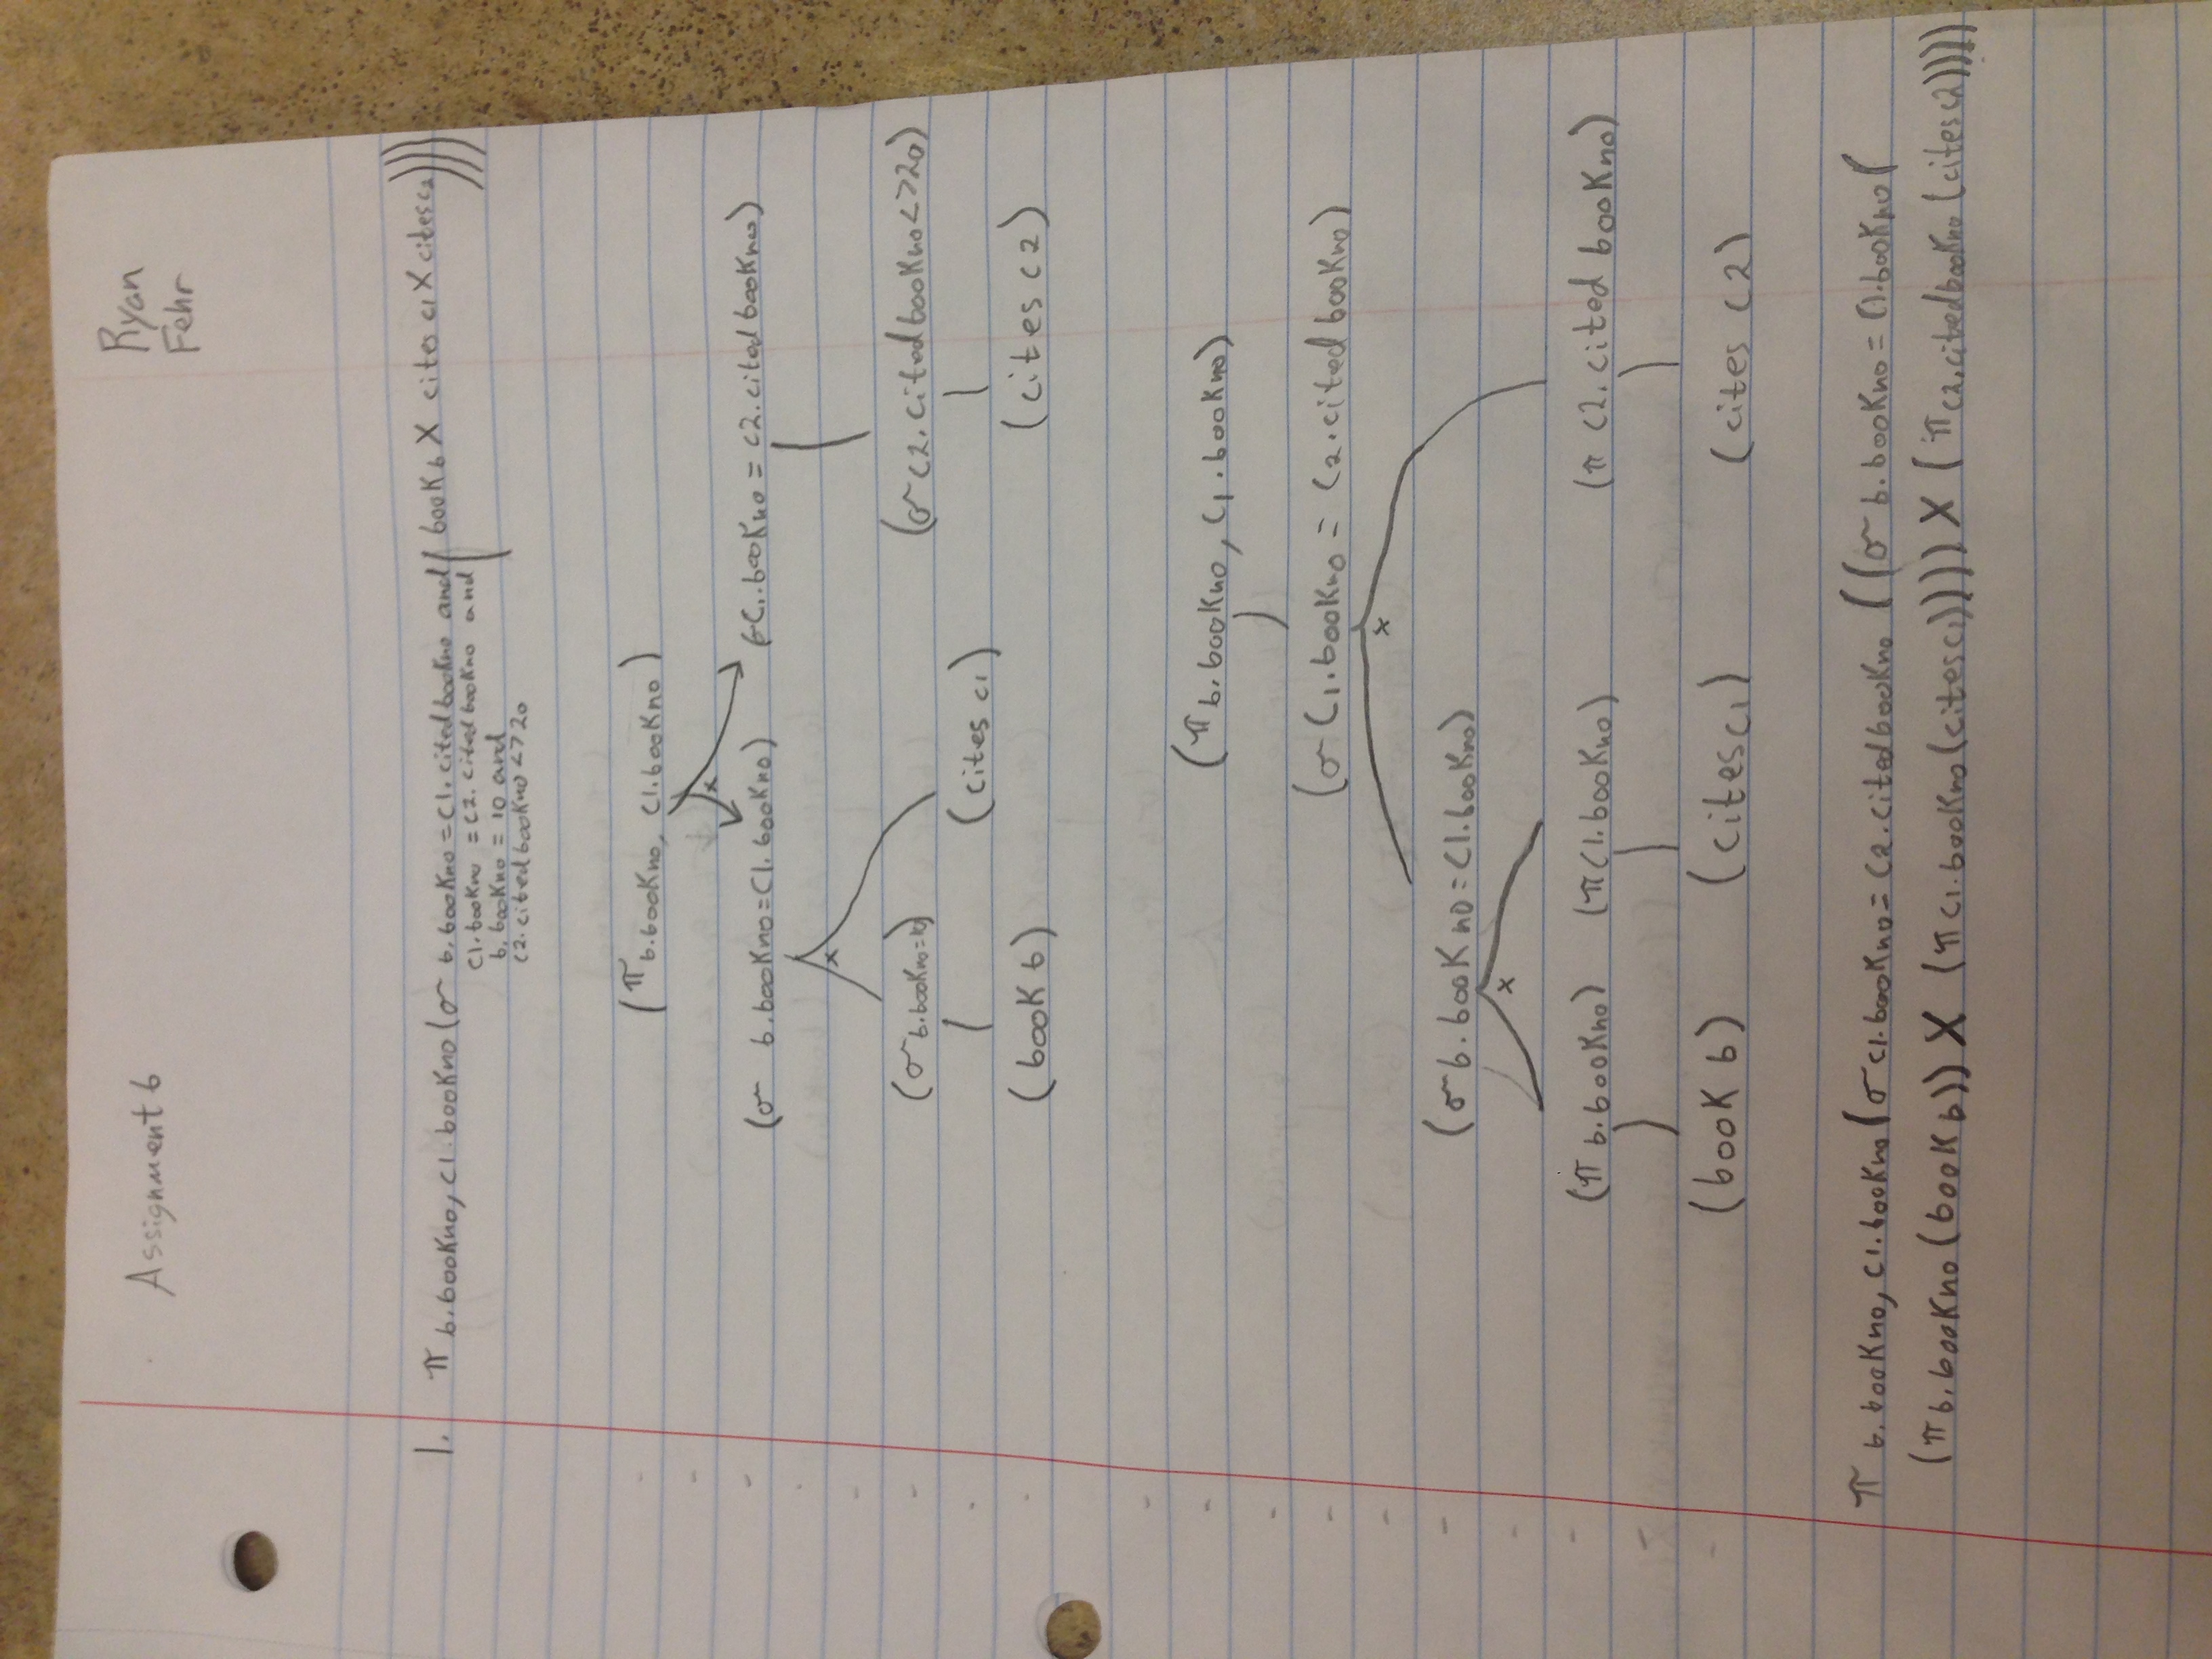 Assignment 6
Ryan
Fehr
1. π b.bookno, c1.bookno (σ b.bookno = c1.citedbookno and ( book b X cites c1 X cites c2 ))))
c1.bookno = c2.citedbookno and
b.bookno = 10 and
c2.citedbookno <> 20
(π b.bookno, c1.bookno)
x
(σ b.bookno = c1.bookno) σ c1.bookno = c2.citedbookno)
x
(σ b.bookno = 10) (σ c2.citedbookno <> 20)
(cites c1)
(book b) (cites c2)
(π b.bookno, c1.bookno)
(σ c1.bookno = c2.citedbookno)
x
(σ b.bookno = c1.bookno)
x
(π b.bookno) (π c1.bookno) (π c2.cited bookno)
(book b) (cites c1) (cites c2)
π b.bookno, c1.bookno (σ c1.bookno = c2.citedbookno ((σ b.bookno = c1.bookno (
(π b.bookno (book b)) X (π c1.bookno (cites c1)))) X (π c2.citedbookno (cites c2))))